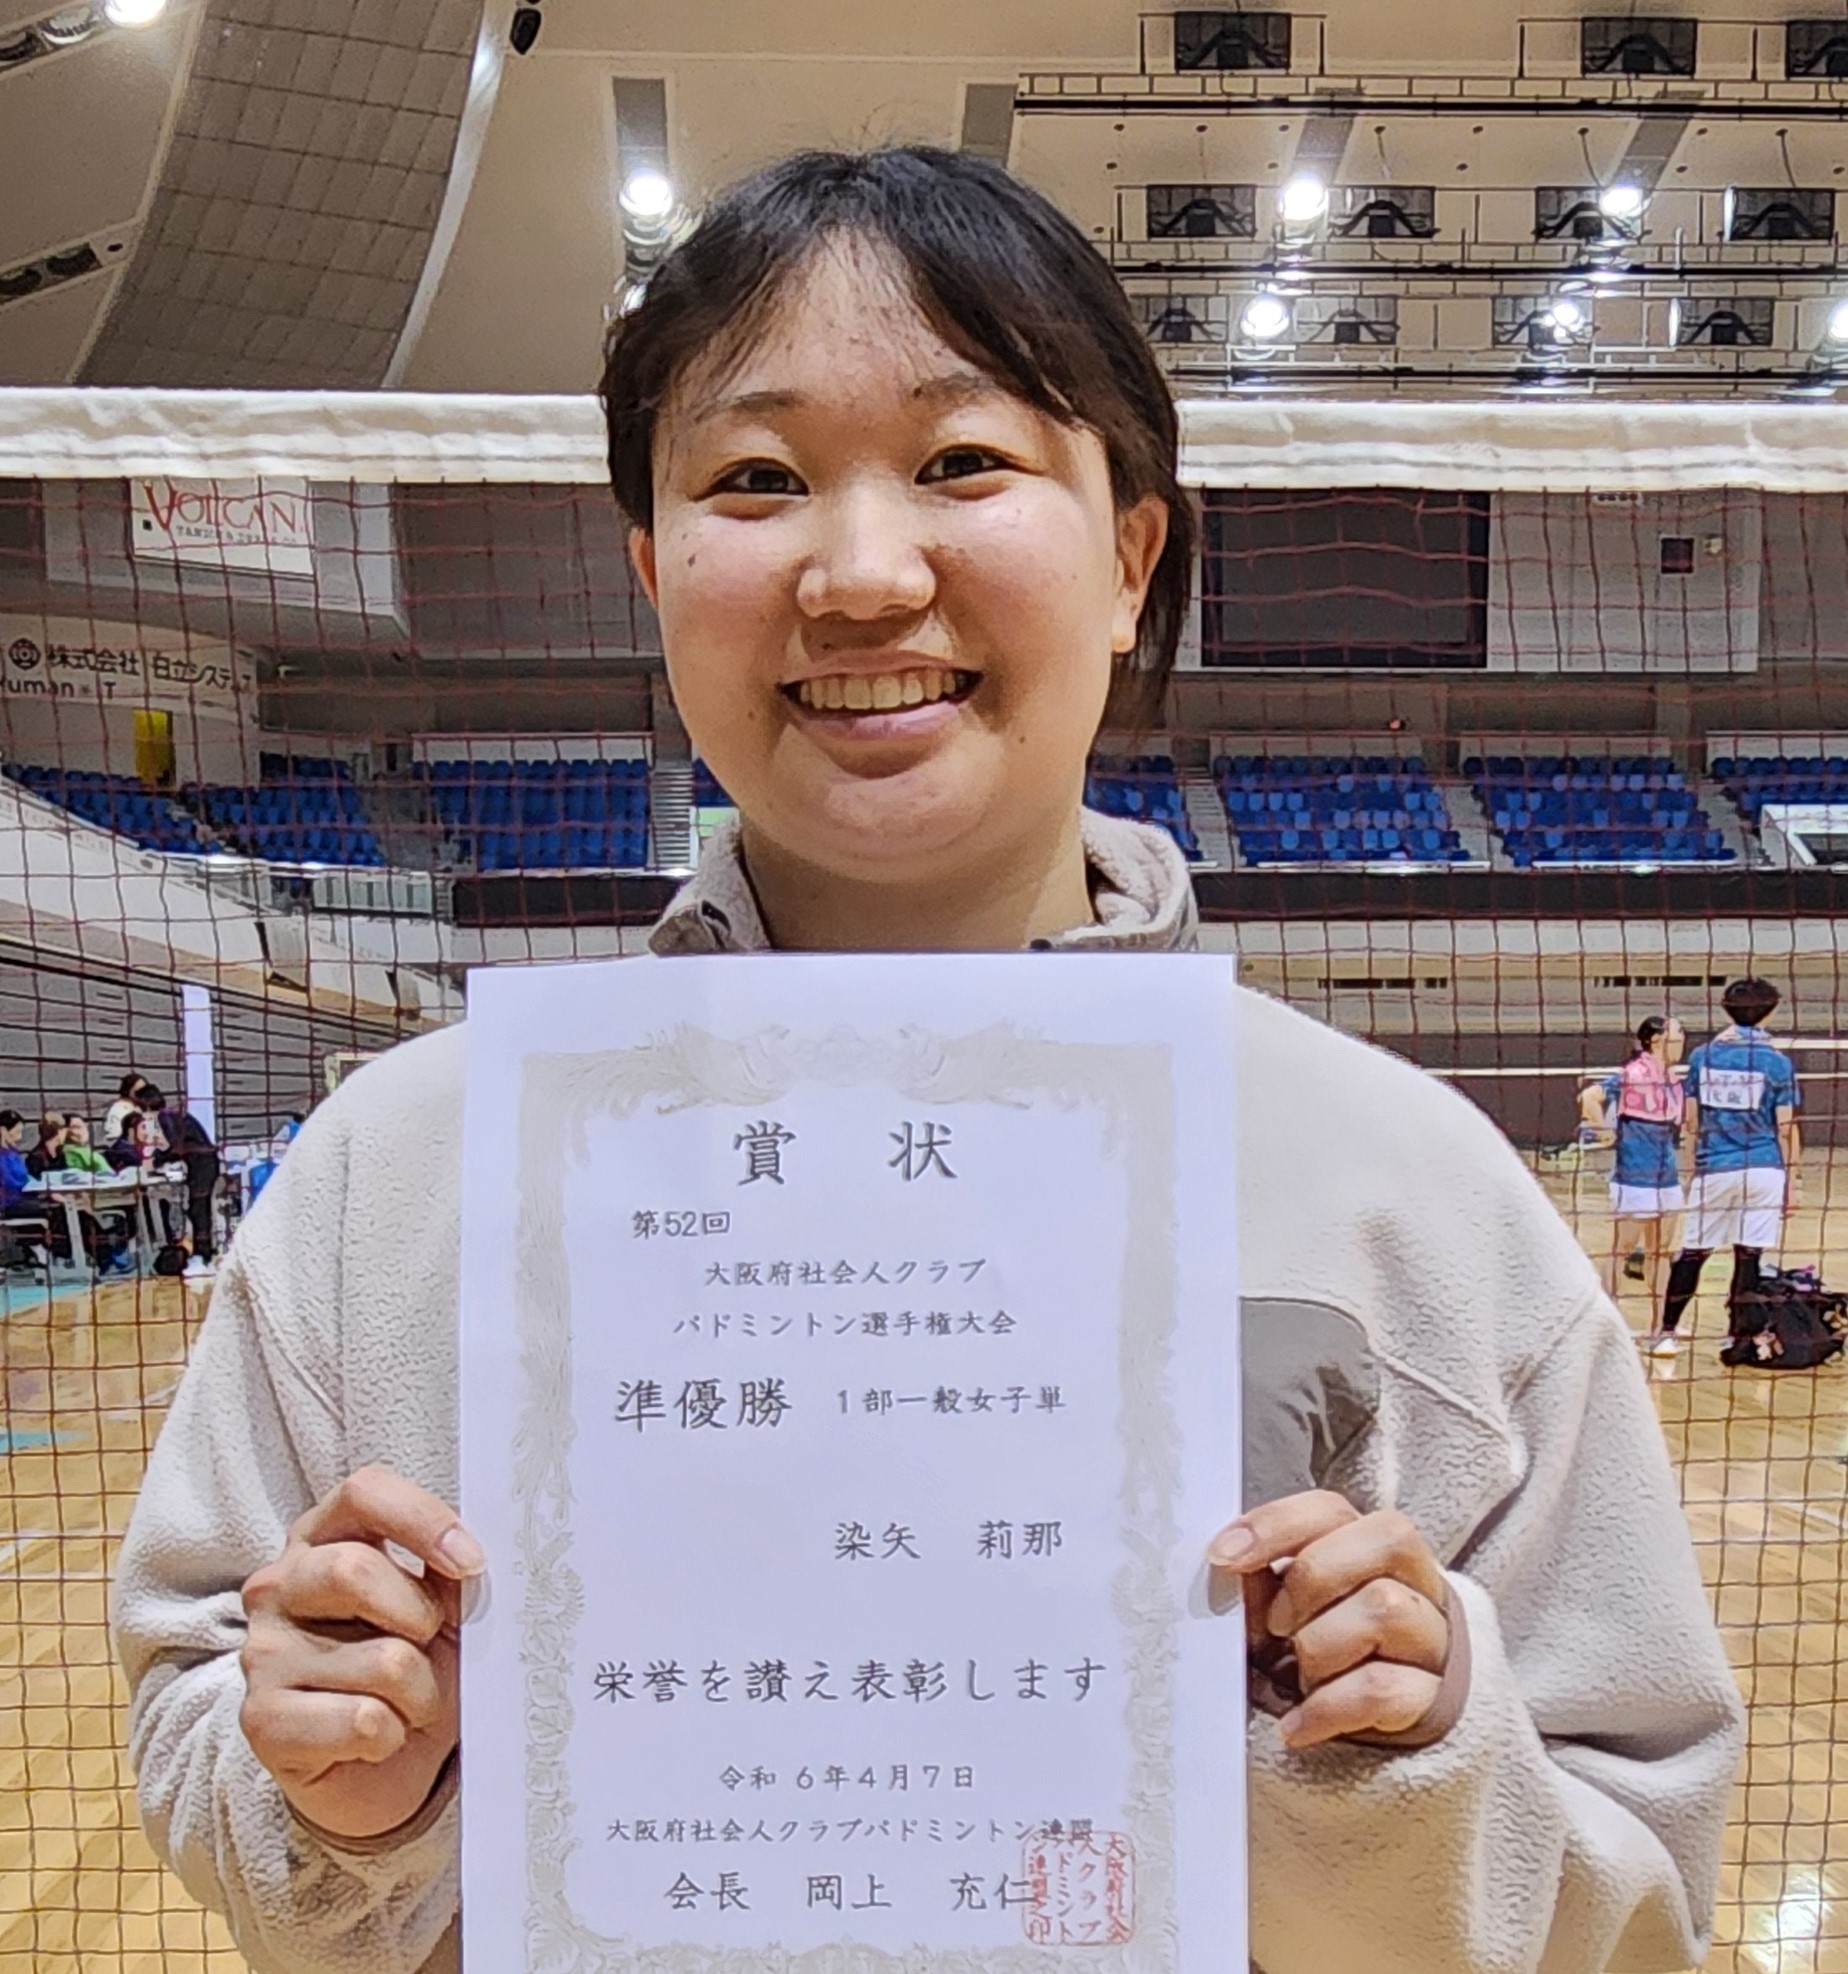 VOLCAN
株式会社 日立システムズ
Human IT
賞 状
第52回
大阪府社会人クラブ
バドミントン選手権大会
準優勝 1部一般女子単
染矢 莉那
栄誉を讃え表彰します
令和 6年4月7日
大阪府社会人クラブバドミントン連盟
会長 岡上 充仁
大阪府社会
人クラブ
バドミント
ン連盟之印
大阪